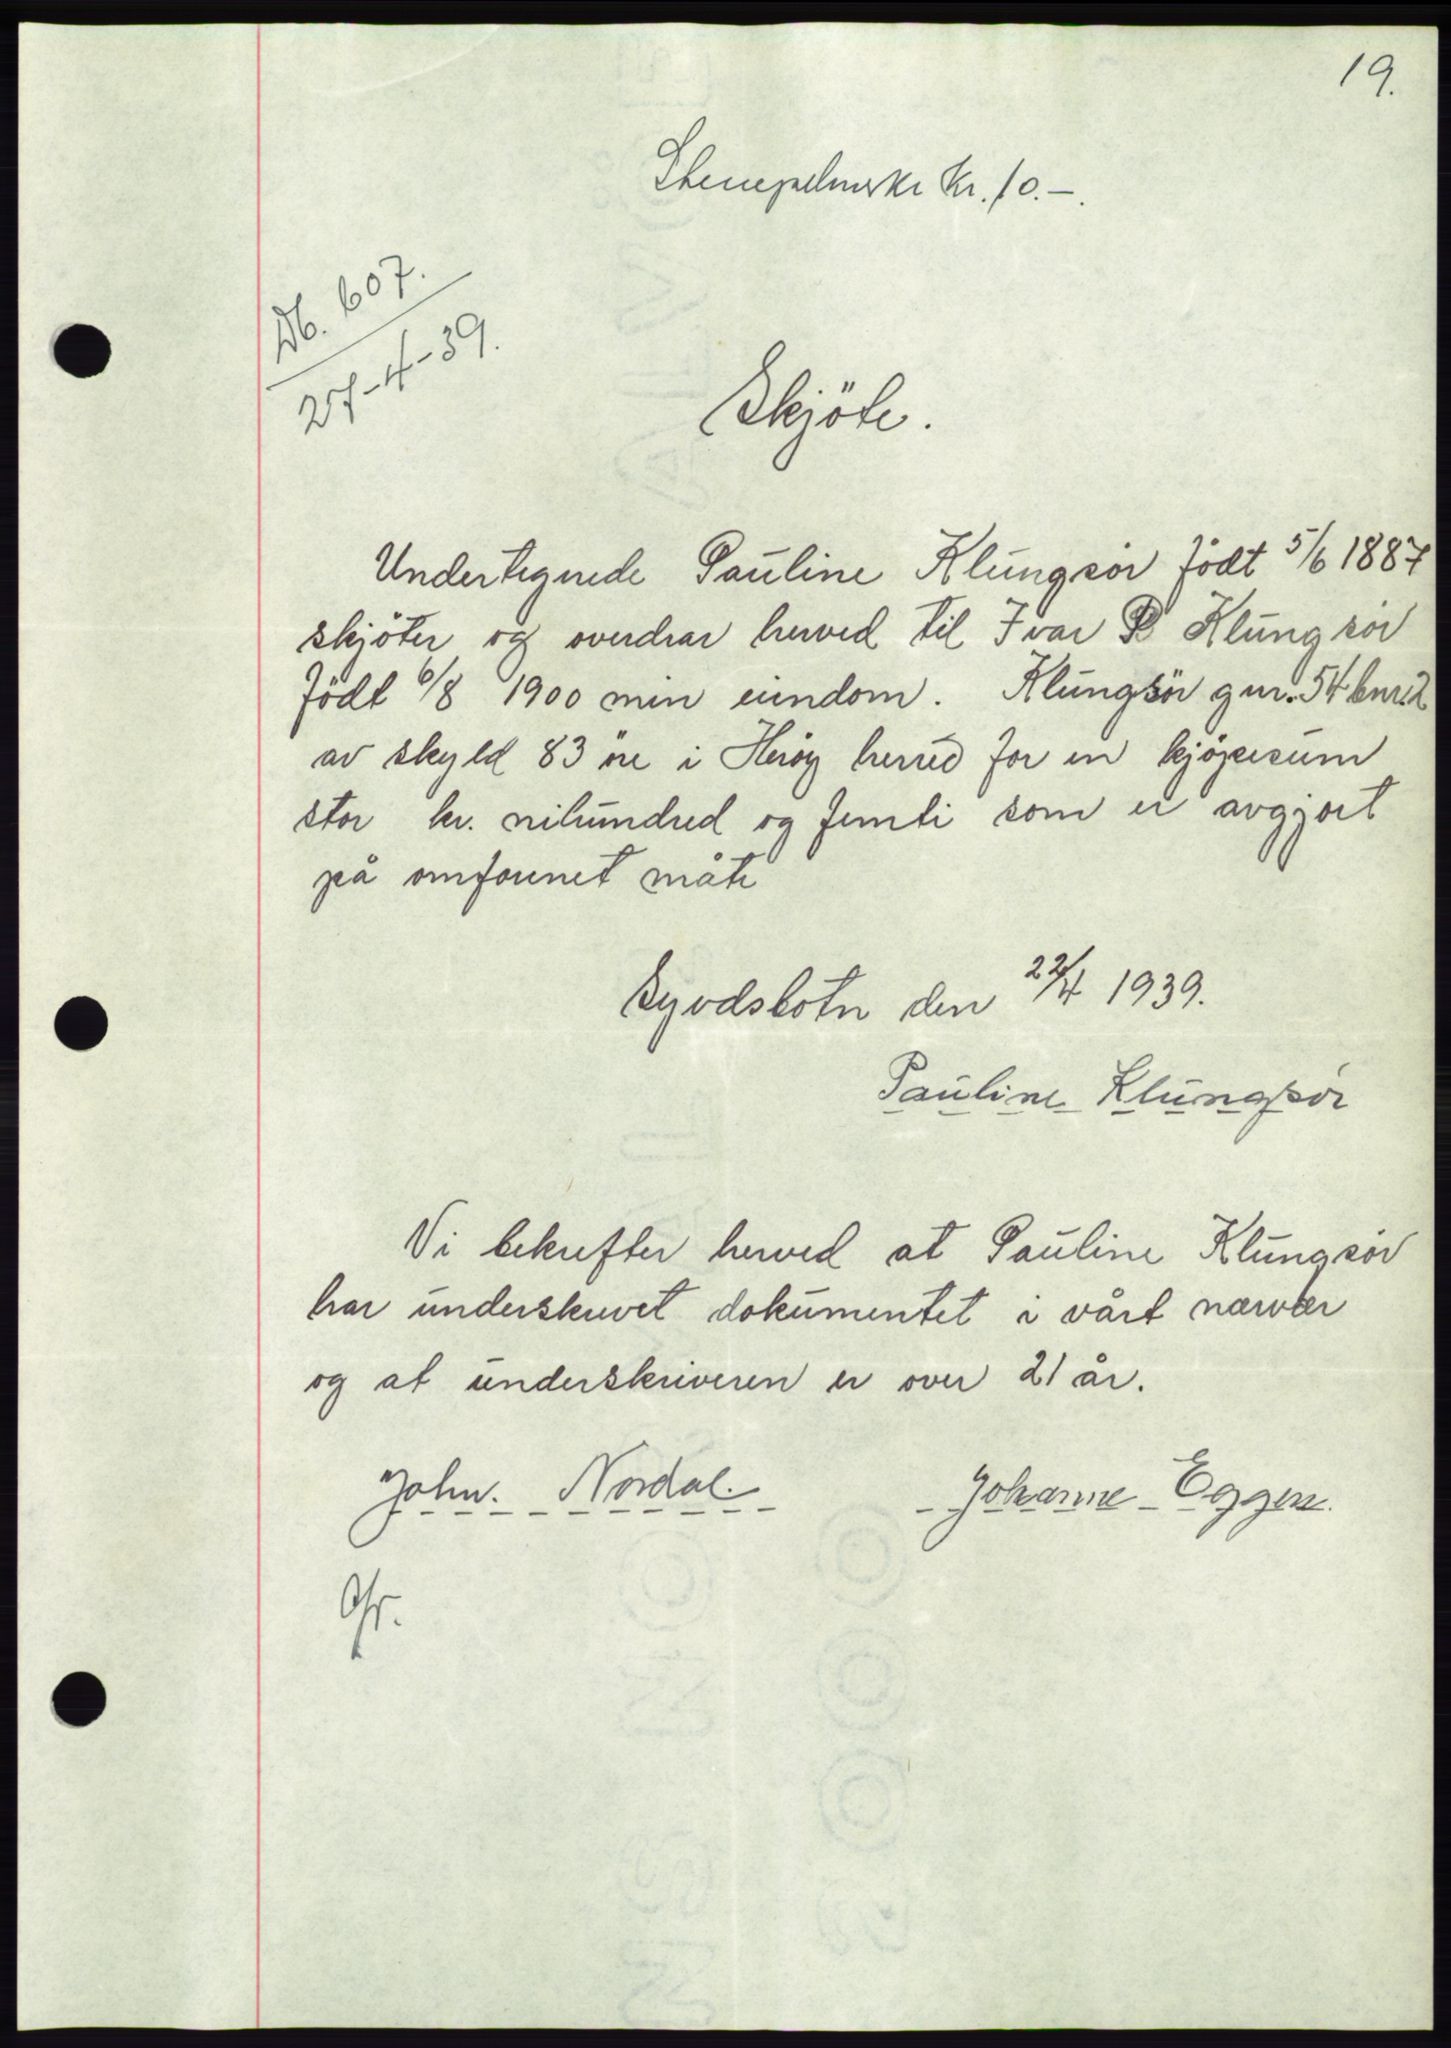 19.
Stempelmerke kr. 10.-.
Db. 607.
27-4-39.
Skjöte.
Undertegnede Pauline Klungsör födt 5/6 1887
skjöter og overdrar herved til Ivar P Klungsör
födt 6/8 1900 min eiendom. Klungsör gnr. 54 bnr. 2
av skyld 83 öre i Heröy herred for en kjöpesum
stor kr. nihundred og femti som er avgjort
på omforenet måte
Syvdsbotn den 22/4 1939.
Pauline Klungsör
Vi bekrefter herved at Pauline Klungsör
har underskrevet dokumentet i vårt nærvær
og at underskriveren er over 21 år.
John. Nordal. Johanne Eggen.